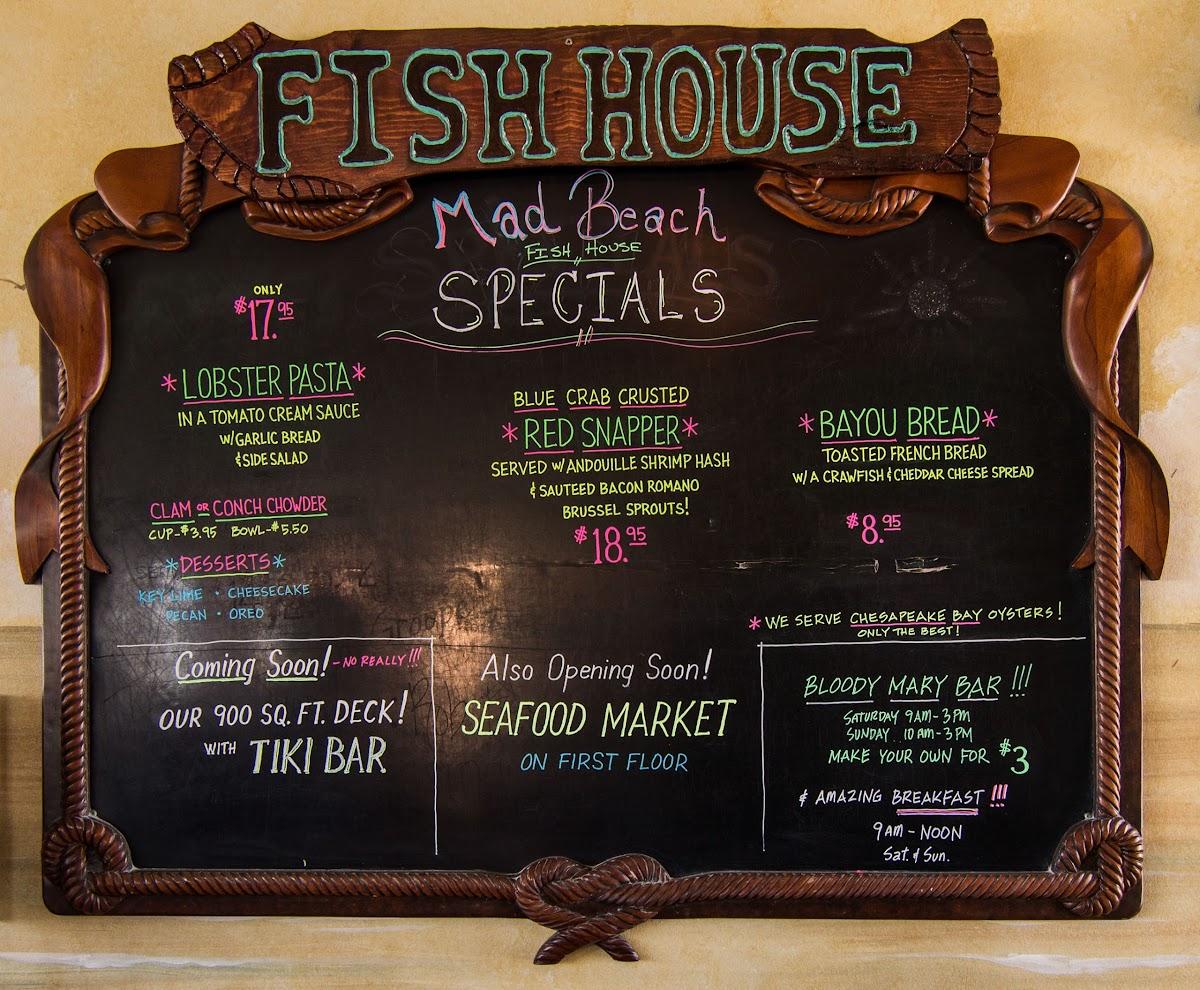 FISH HOUSE
Mad Beach
FISH HOUSE
SPECIALS
ONLY
$17.95
*LOBSTER PASTA*
IN A TOMATO CREAM SAUCE
W/GARLIC BREAD
& SIDE SALAD
CLAM OR CONCH CHOWDER
CUP-$3.95 BOWL-$5.50
*DESSERTS*
KEY LIME • CHEESECAKE
PECAN • OREO
BLUE CRAB CRUSTED
*RED SNAPPER*
SERVED W/ANDOUILLE SHRIMP HASH
& SAUTEED BACON ROMANO
BRUSSEL SPROUTS!
$18.95
*BAYOU BREAD*
TOASTED FRENCH BREAD
W/A CRAWFISH & CHEDDAR CHEESE SPREAD
$8.95
*WE SERVE CHESAPEAKE BAY OYSTERS!
ONLY THE BEST!
Coming Soon! -NO REALLY!!!
OUR 900 SQ. FT. DECK!
WITH TIKI BAR
Also Opening Soon!
SEAFOOD MARKET
ON FIRST FLOOR
BLOODY MARY BAR!!!
SATURDAY 9AM-3PM
SUNDAY 10AM-3PM
MAKE YOUR OWN FOR $3
& AMAZING BREAKFAST!!!
9AM-NOON
Sat. & Sun.